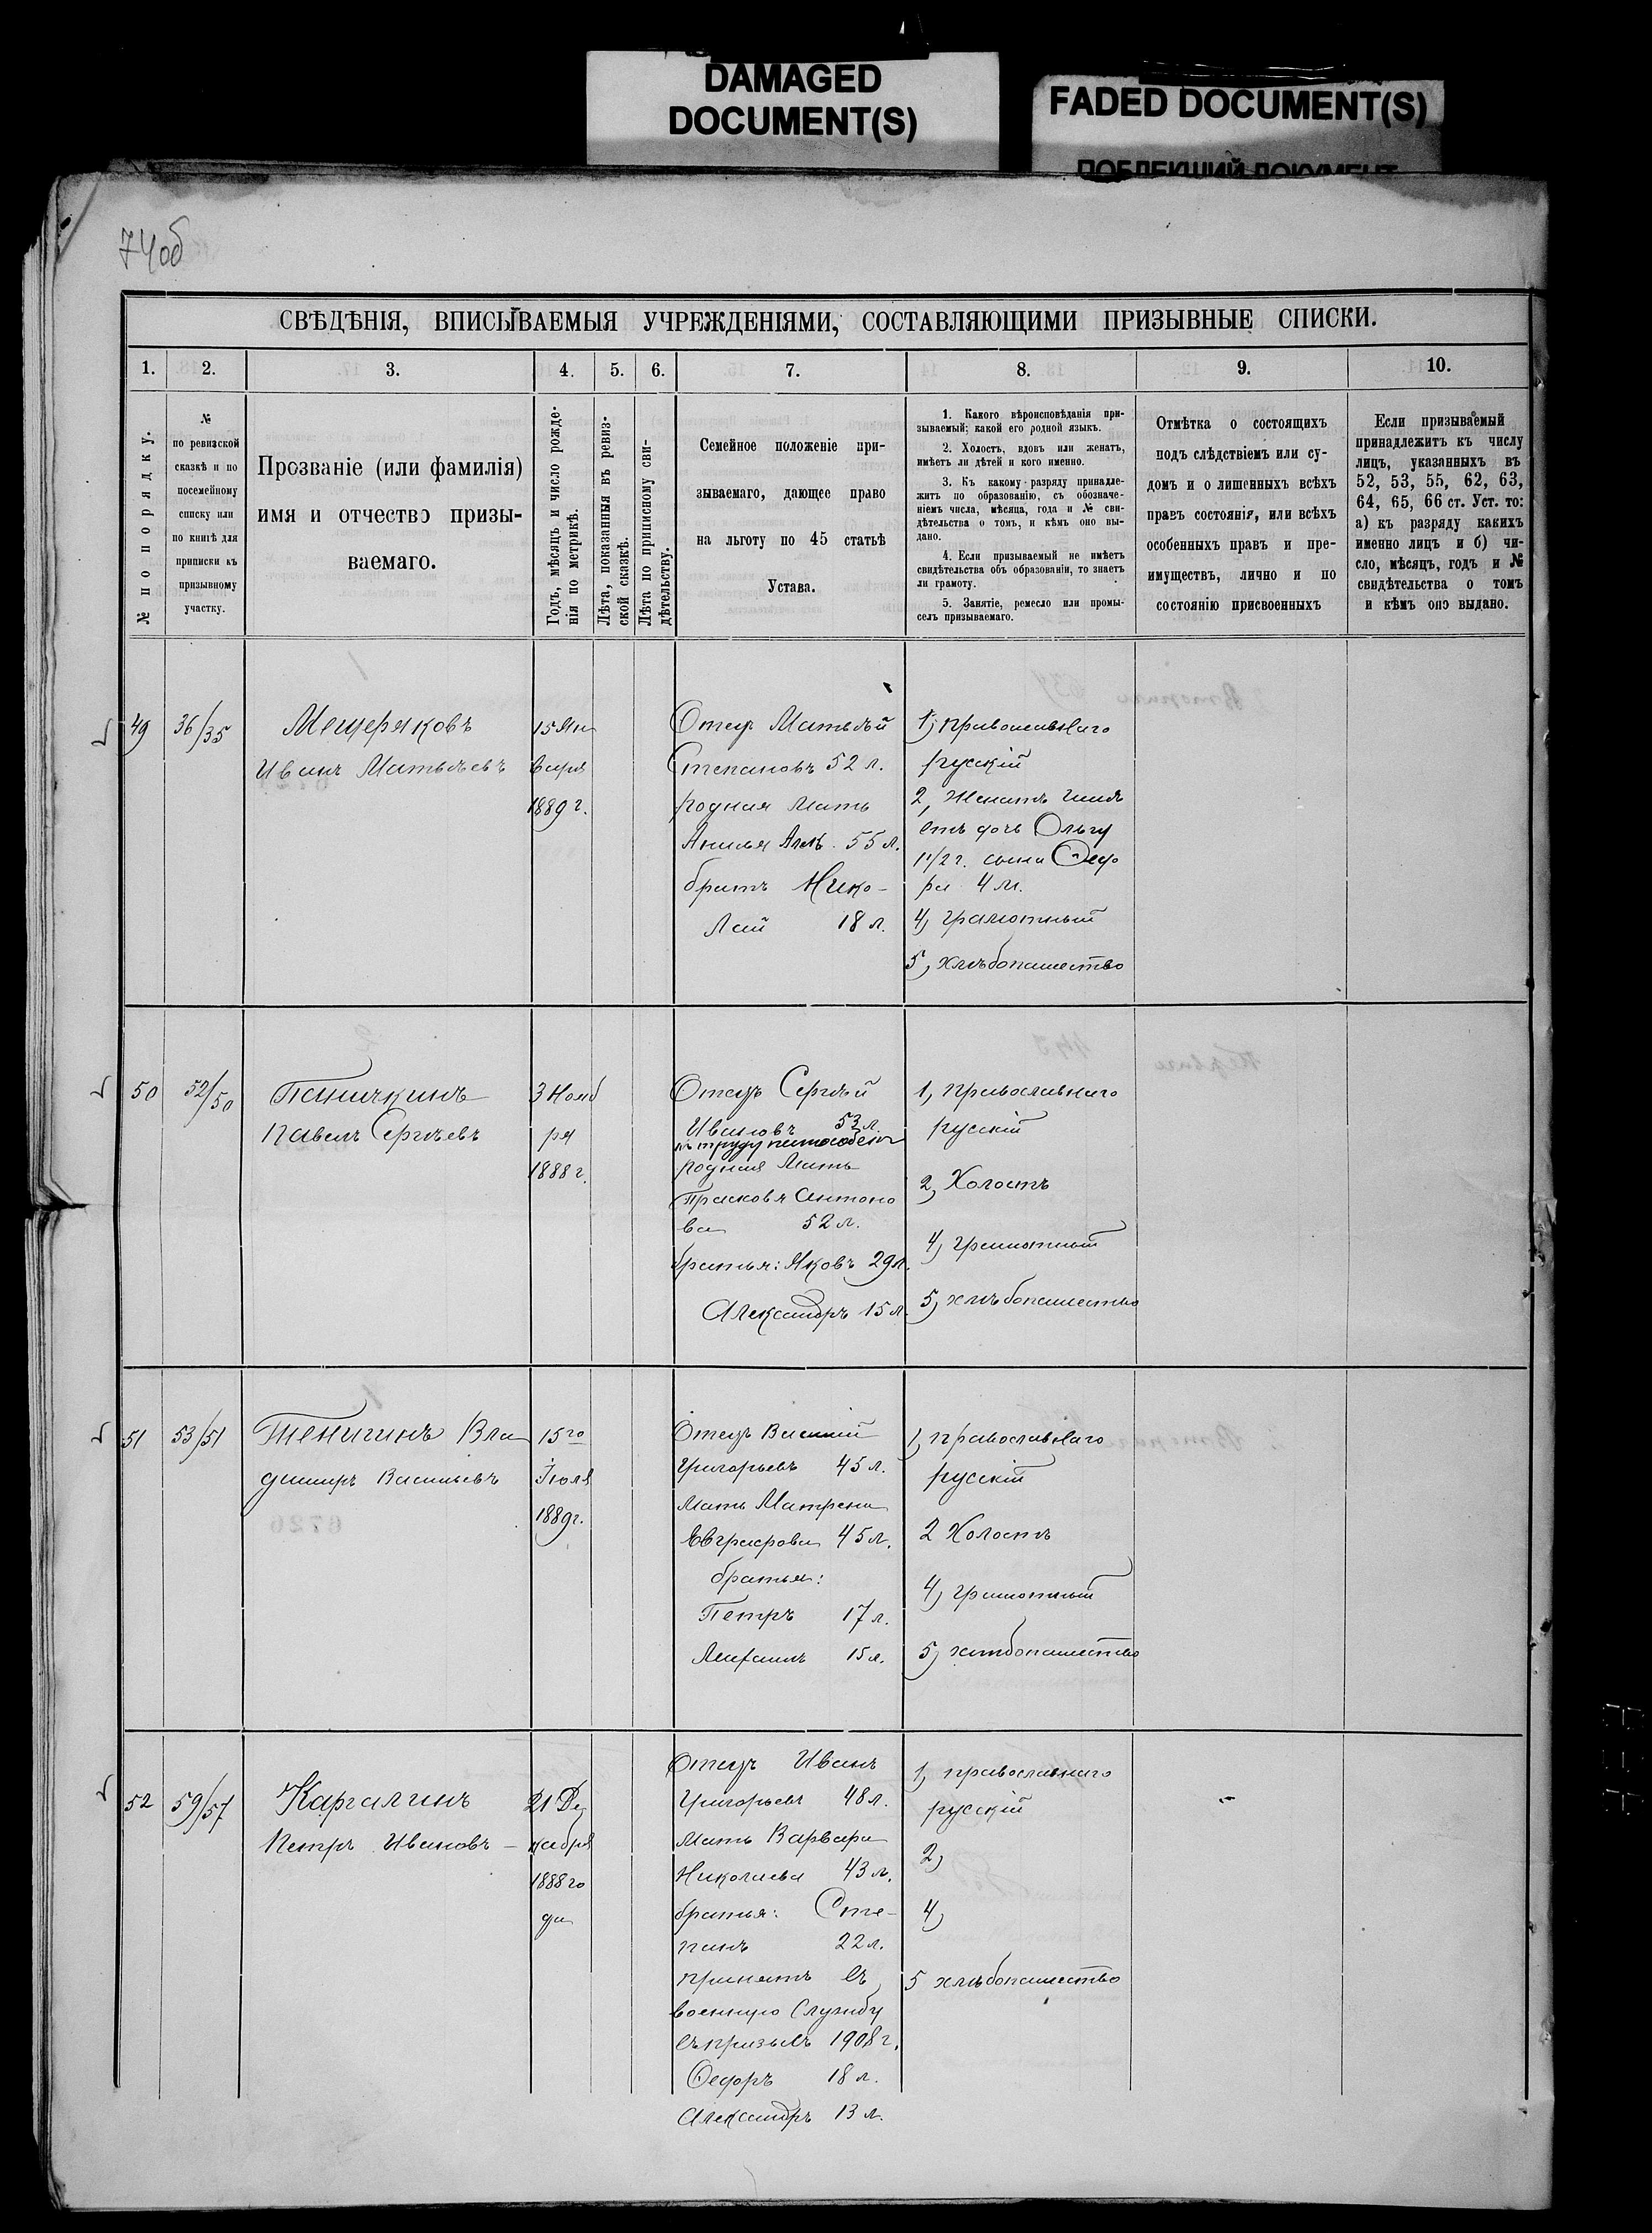 DAMAGED
DOCUMENT(S)
FADED DOCUMENT(S)
ПОБЛЕКШИЙ ДОКУМЕНТ
74об
СВѢДѢНІЯ, ВПИСЫВАЕМЫЯ УЧРЕЖДЕНІЯМИ, СОСТАВЛЯЮЩИМИ ПРИЗЫВНЫЕ СПИСКИ.
1. 2. 3. 4. 5. 6. 7. 8. 9. 10.
№ по порядку.
№
по ревизской
сказкѣ и по
посемейному
списку или
по книгѣ для
приписки къ
призывному
участку.
Прозваніе (или фамилія)
имя и отчество призы-
ваемаго.
Годъ, мѣсяцъ и число рожде-
нія по метрикѣ.
Лѣта, показанныя въ ревиз-
ской сказкѣ.
Лѣта по приписному сви-
дѣтельству.
Семейное положеніе при-
зываемаго, дающее право
на льготу по 45 статьѣ
Устава.
1. Какого вѣроисповѣданія при-
зываемый; какой его родной языкъ.
2. Холостъ, вдовъ или женатъ,
имѣетъ ли дѣтей и кого именно.
3. Къ какому разряду принадле-
житъ по образованію, съ обозначе-
ніемъ числа, мѣсяца, года и № сви-
дѣтельства о томъ, и кѣмъ оно вы-
дано.
4. Если призываемый не имѣетъ
свидѣтельства объ образованіи, то знаетъ
ли грамоту.
5. Занятіе, ремесло или промы-
селъ призываемаго.
Отмѣтка о состоящихъ
подъ слѣдствіемъ или су-
домъ и о лишенныхъ всѣхъ
правъ состоянія, или всѣхъ
особенныхъ правъ и пре-
имуществъ, лично и по
состоянію присвоенныхъ
Если призываемый
принадлежитъ къ числу
лицъ, указанныхъ въ
52, 53, 55, 62, 63,
64, 65, 66 ст. Уст. то:
а) къ разряду какихъ
именно лицъ и б) чи-
сло, мѣсяцъ, годъ и №
свидѣтельства о томъ
и кѣмъ оно выдано.
49
36/35
Мещеряковъ
Иванъ Матвѣевъ
15 Ян
варя
1889 г.
Отецъ Матвѣй
Степановъ 52 л.
родная мать
55 л.
братъ Нико-
лай 18 л.
1, православнаго
русскій
2, Женатъ имѣ
етъ дочь Ольгу
1 1/2 г. сына Ѳедо
ра 4 м.
4, грамотный
5, хлѣбопашество
50
52/50
Паничкинъ
Павелъ Сергѣевъ
3 Нояб
ря
1888 г.
Отецъ Сергѣй
Ивановъ 53 л.
къ труду неспособенъ
родная мать
Прасковья Антоно
ва 52 л.
братья: Яковъ 29 л.
Александръ 15 л.
1, православнаго
русскій
2, Холостъ
4, грамотный
5, хлѣбопашество
51
53/51
Тенигинъ Вла
димиръ Васильевъ
15го
Іюля
1889 г.
Отецъ Василій
Григорьевъ 45 л.
мать Матрена
Евграфова 45 л.
братья:
Петръ 17 л.
15 л.
1, православнаго
русскій
2 Холостъ
4, грамотный
5, хлѣбопашество
52
59/57
Каргалинъ
Петръ Ивановъ –
21 Де
кабря
1888 го
да
Отецъ Иванъ
Григорьевъ 48 л.
мать Варвара
Николаева 43 л.
братья: Сте-
панъ 22 л.
принятъ въ
военную службу
въ призывъ 1908 г.
Ѳедоръ 18 л.
Александръ 13 л.
1, православнаго
русскій
2,
4,
5 хлѣбопашество